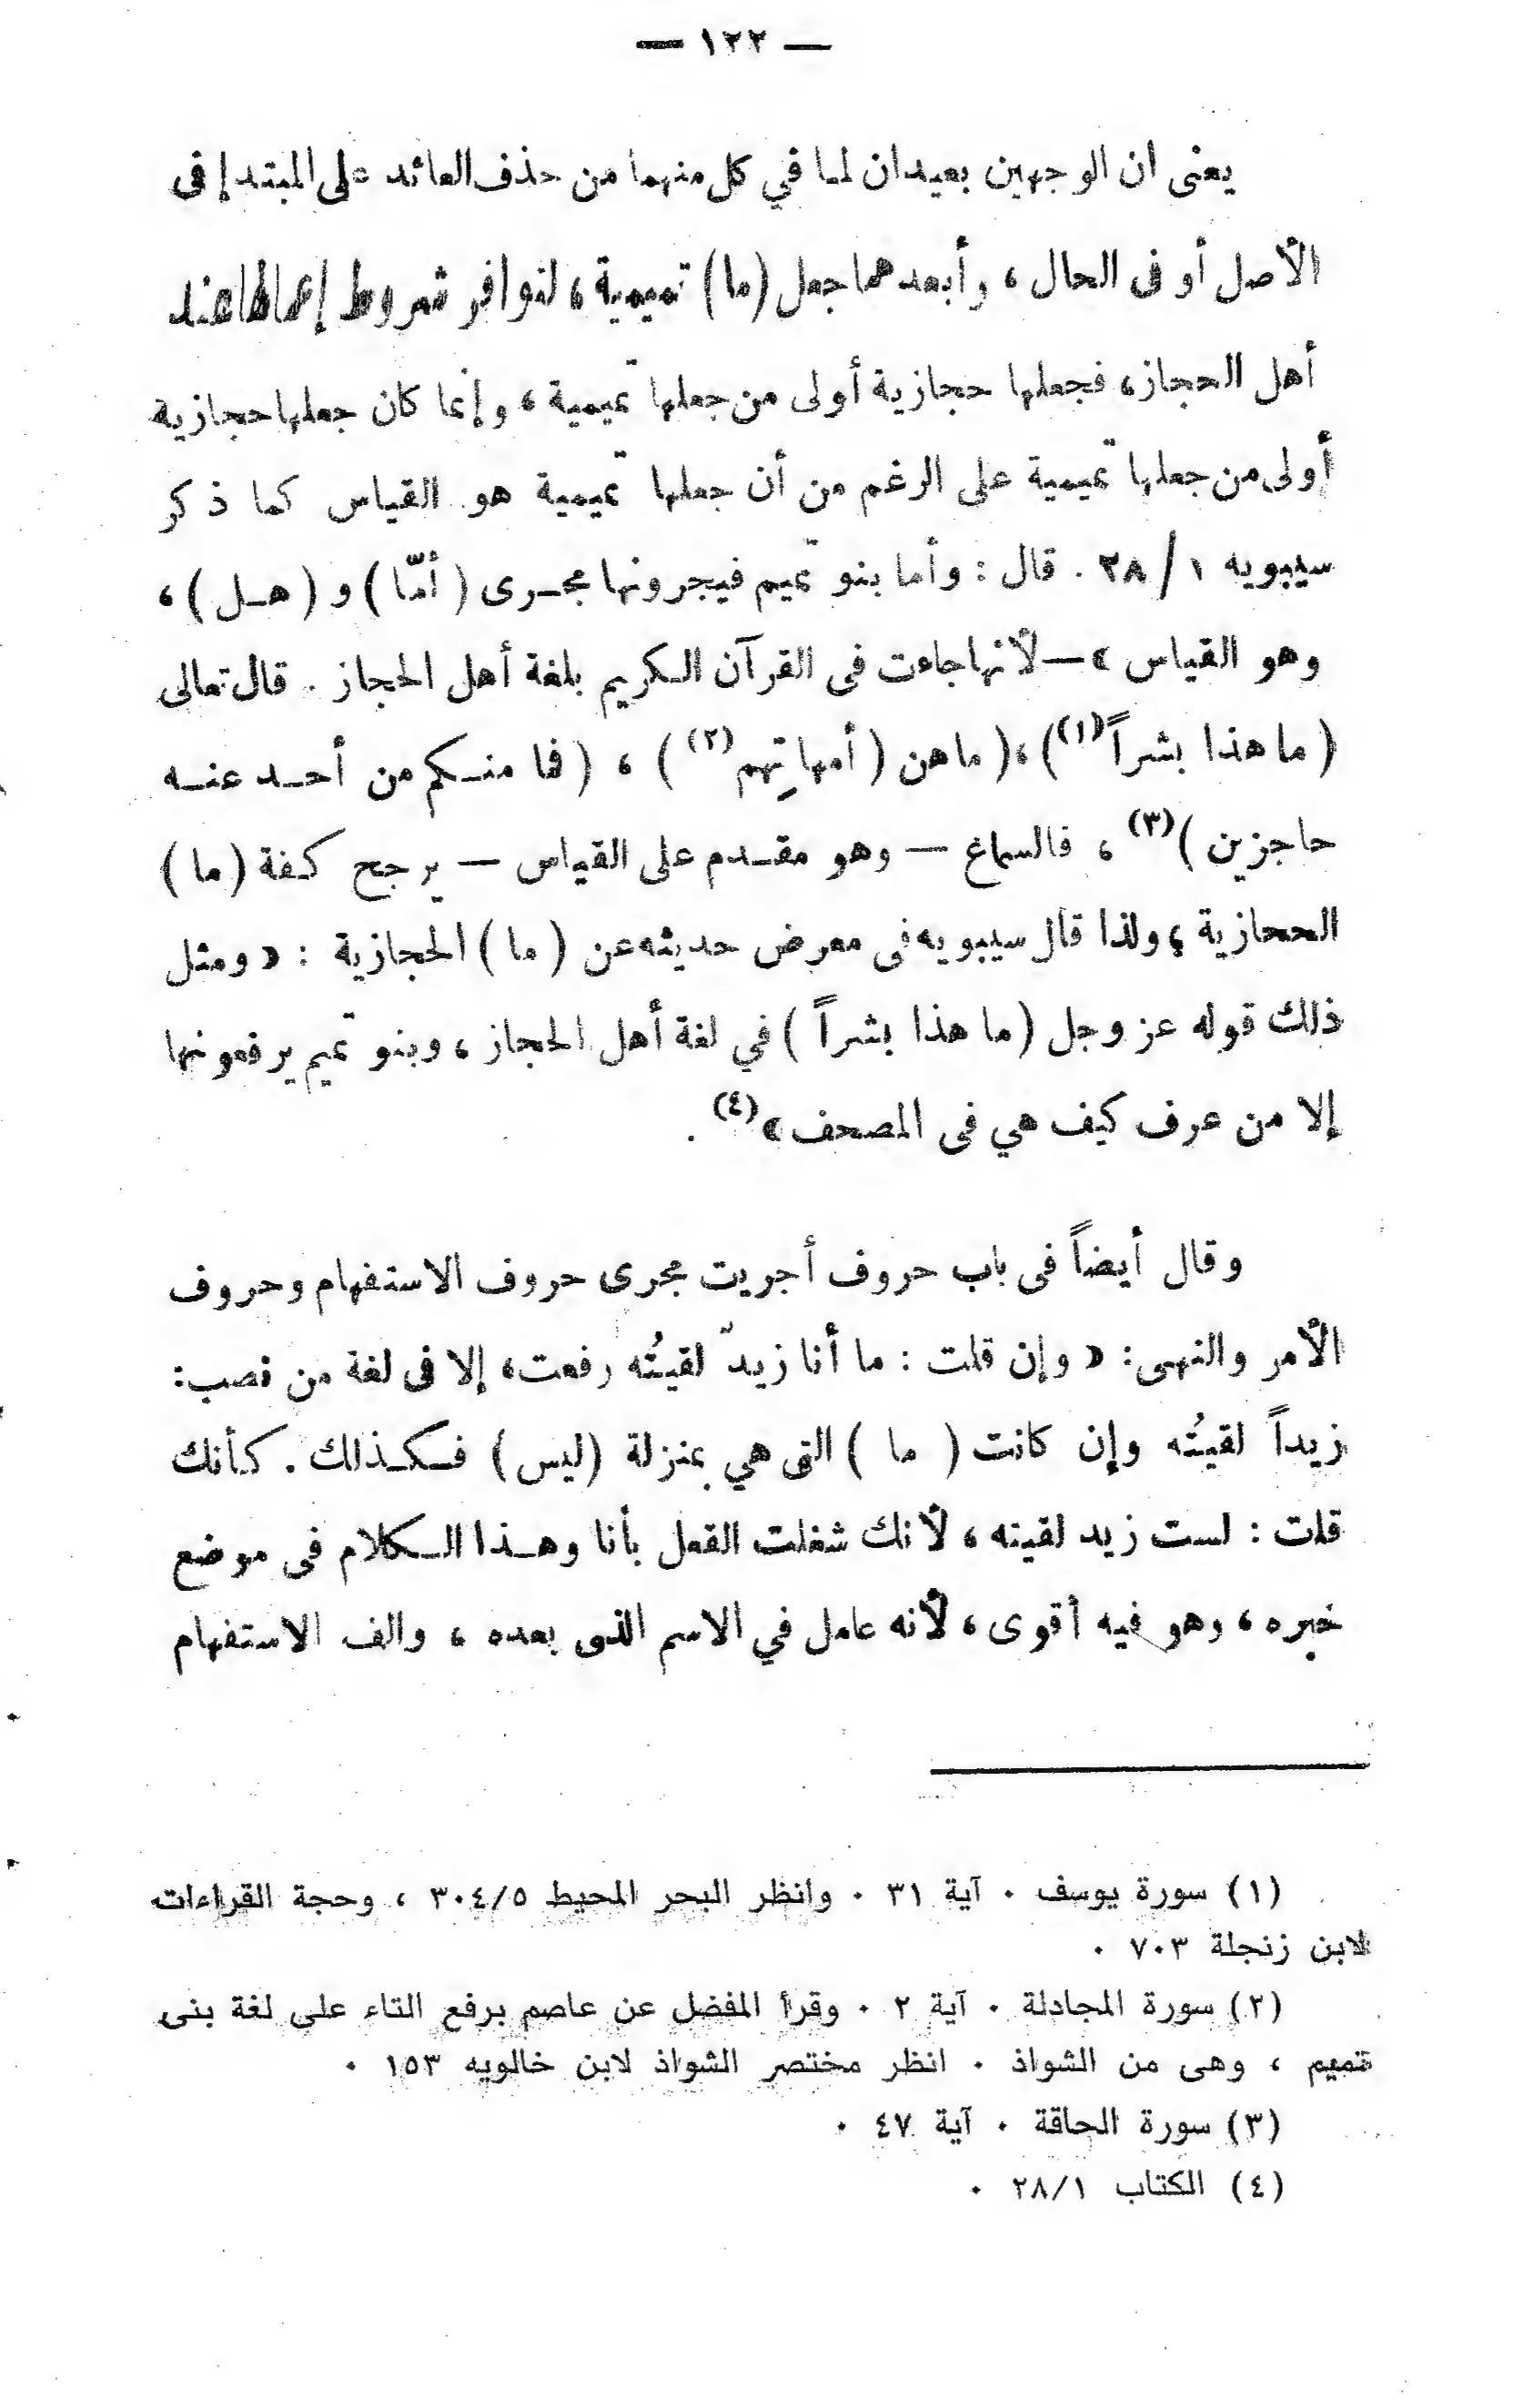 — ١٢٢ —
يعنى ان الوجهين بعيدان لما في كل منهما من حذف العائد على المبتدإ فى
الأصل أو فى الحال ، وأبعدهما جعل (ما) تميمية ، لتوافر شروط إعمالها عند
أهل الحجاز ، فجعلها حجازية أولى من جعلها تميمية ، وإنما كان جعلها حجازية
أولى من جعلها تميمية على الرغم من أن جعلها تميمية هو القياس كما ذكر
سيبويه ١ / ٢٨ . قال : وأما بنو تميم فيجرونها مجـرى ( أمّا ) و ( هـل ) ،
وهو القياس » — لأنها جاءت فى القرآن الـكريم بلغة أهل الحجاز . قال تعالى
( ما هذا بشراً (١) ) ، ( ما هن ( أمهاتِهم (٢) ) ، ( فما منـكم من أحـد عنـه
حاجزين ) (٣) ، فالسماع — وهو مقـدم على القياس — يرجح كفة ( ما )
الحجازية ، ولذا قال سيبويه فى معرض حديثه عن ( ما ) الحجازية : « ومثل
ذلك قوله عز وجل ( ما هذا بشراً ) في لغة أهل الحجاز ، وبنو تميم يرفعونها
إلا من عرف كيف هي فى المصحف » (٤) .
وقال أيضاً فى باب حروف أجريت مجرى حروف الاستفهام وحروف
الأمر والنهى : « وإن قلت : ما أنا زيدّ لقيتُه رفعت ، إلا فى لغة من نصب :
زيداً لقيتُه وإن كانت ( ما ) التى هي بمنزلة (ليس) فـكـذلك . كأنك
قلت : لست زيد لقيته ، لأنك شغلت الفعل بأنا وهـذا الـكلام فى موضع
خبره ، وهو فيه أقوى ، لأنه عامل في الاسم الذى بعده ، والف الاستفهام
(١) سورة يوسف ٠ آية ٣١ ٠ وانظر البحر المحيط ٣٠٤/٥ ، وحجة القراءات
لابن زنجلة ٧٠٣ ٠
(٢) سورة المجادلة ٠ آية ٢ ٠ وقرأ المفضل عن عاصم برفع التاء على لغة بنى
تميم ، وهى من الشواذ ٠ انظر مختصر الشواذ لابن خالويه ١٥٣ ٠
(٣) سورة الحاقة ٠ آية ٤٧ ٠
(٤) الكتاب ٢٨/١ ٠